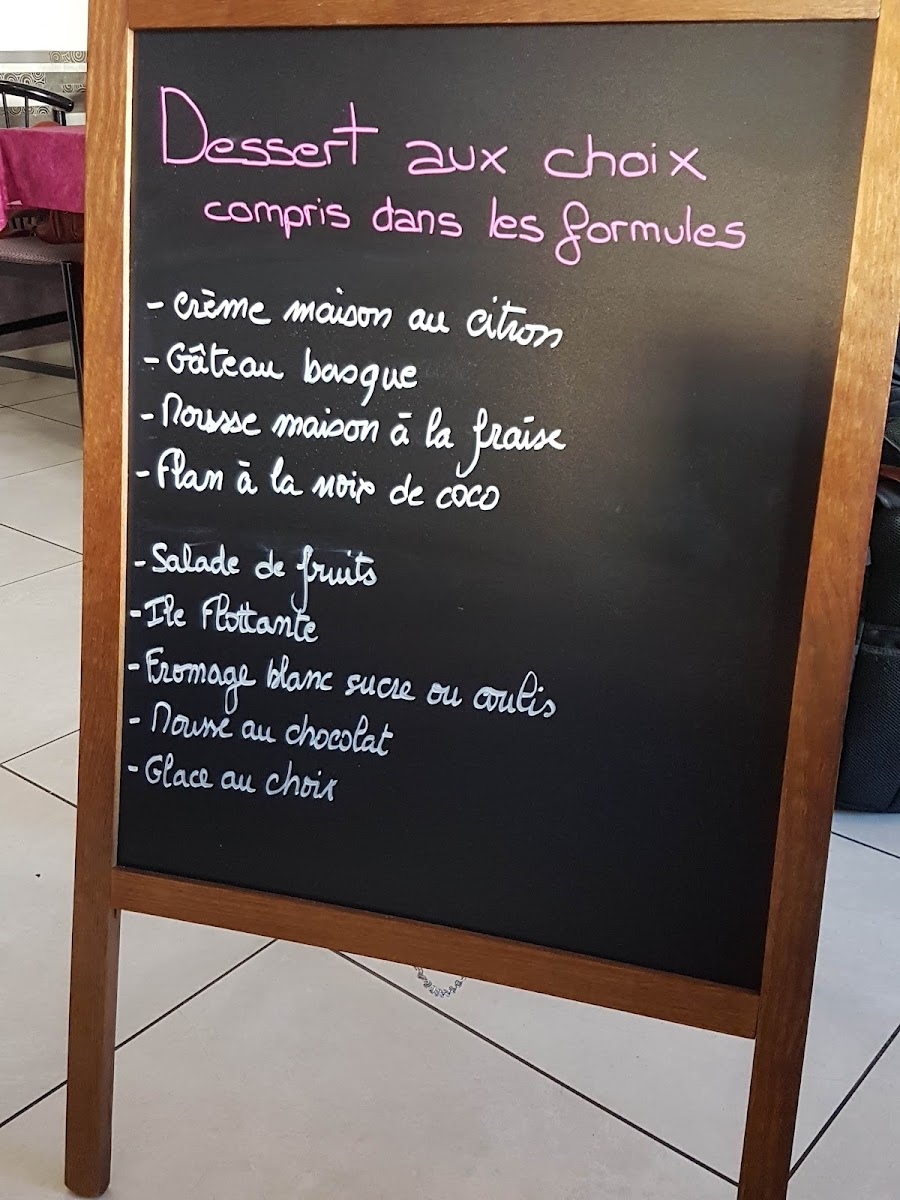 Dessert aux choix
compris dans les formules
- crème maison au citron
- Gâteau basque
- Mousse maison à la fraise
- Flan à la noix de coco
- Salade de fruits
- Ile Flottante
- Fromage blanc sucre ou coulis
- Mousse au chocolat
- Glace au choix